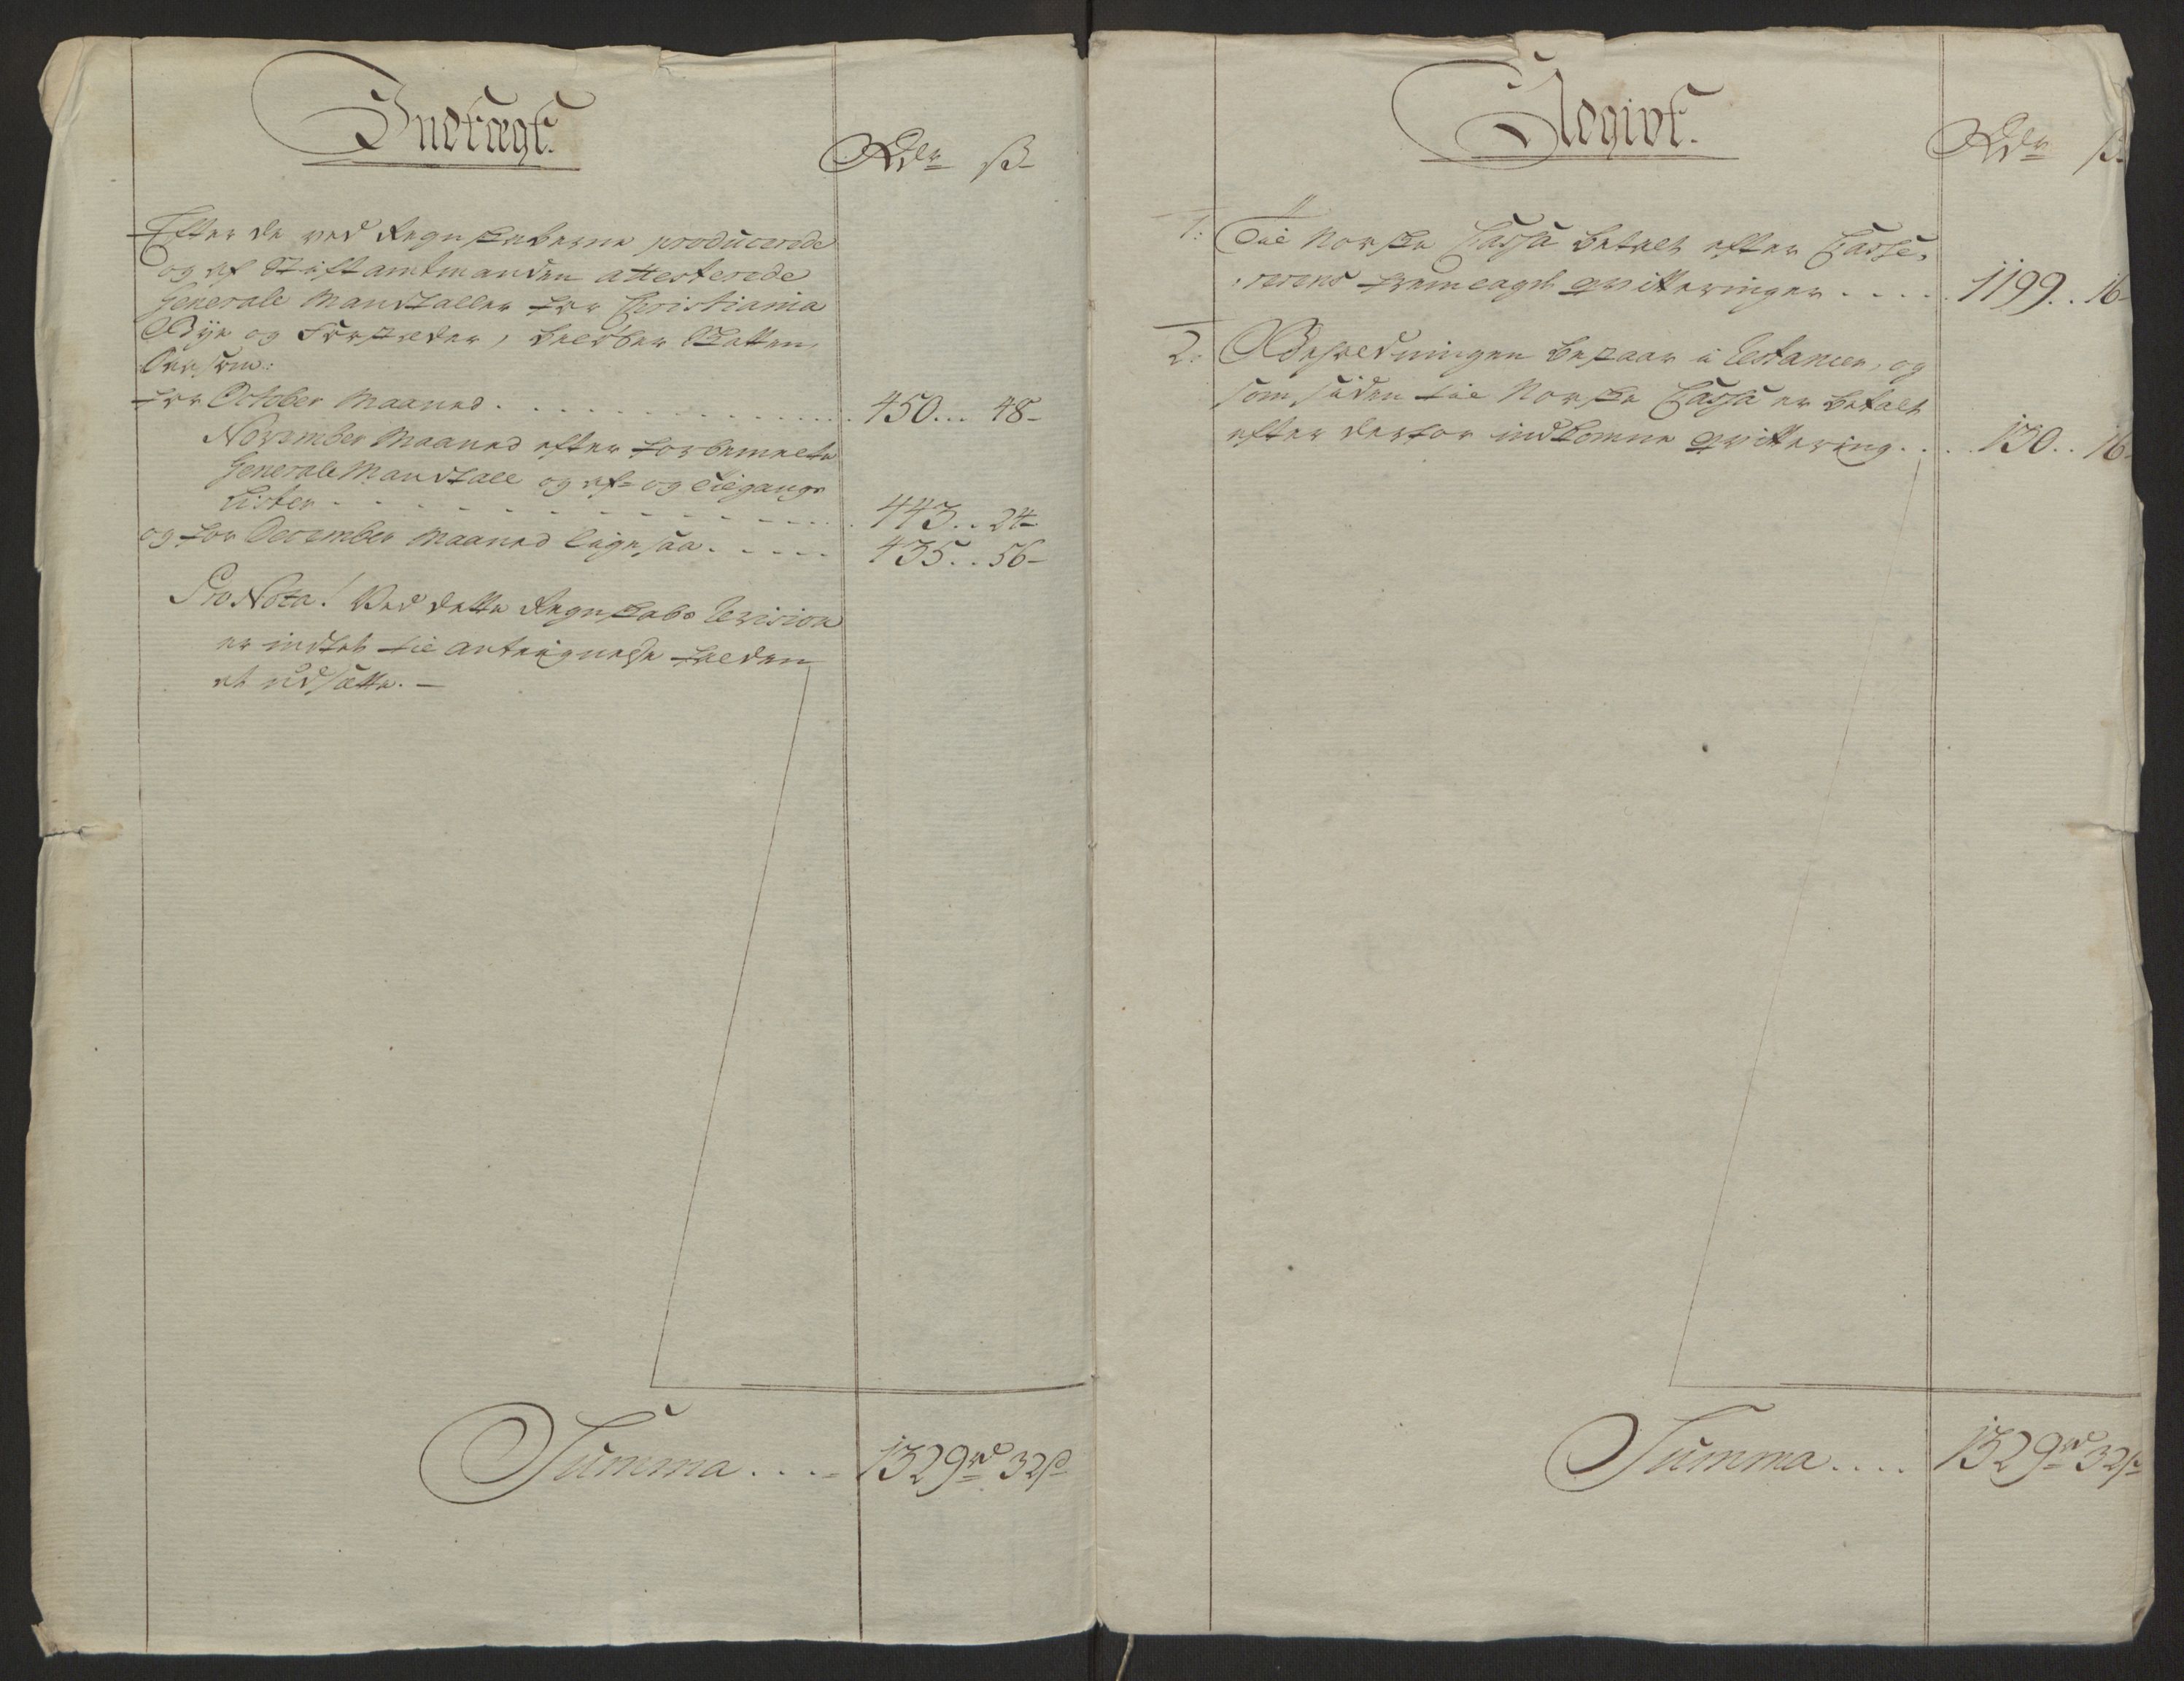 Indtægt.
Rdr ß
Efter de ved Regnskaberne producerede
og af Stiftamtmanden attesterede
Generale Mandtaller for Christiania
Bÿe og Forstæder, beløber Skatten,
som:
for October Maaned . . . 450 .. 48
November Maaned efter forbemelte
Generale Mandtall og af- og tilgangs
Lister . . . 443 .. 24
og for December Maaned ligesaa . . . 435 .. 56
Pro Nota! Ved dette Regnskabs Revision
er intet til Antegnelse falden
at udsætte. —
Summa . . . . 1329 rd 32 ß
Udgivt.
Rdr ß
1. Til Norske Cassa betalt efter Casse-
rerens fremlagde qvitteringer . . . . 1199 .. 16
2. Beholdningen bestaar i Restancer, og
som siden til Norske Cassa er betalt
efter derfor indkomne qvittering . . . 130 .. 16
Summa . . . . 1329 rd 32 ß